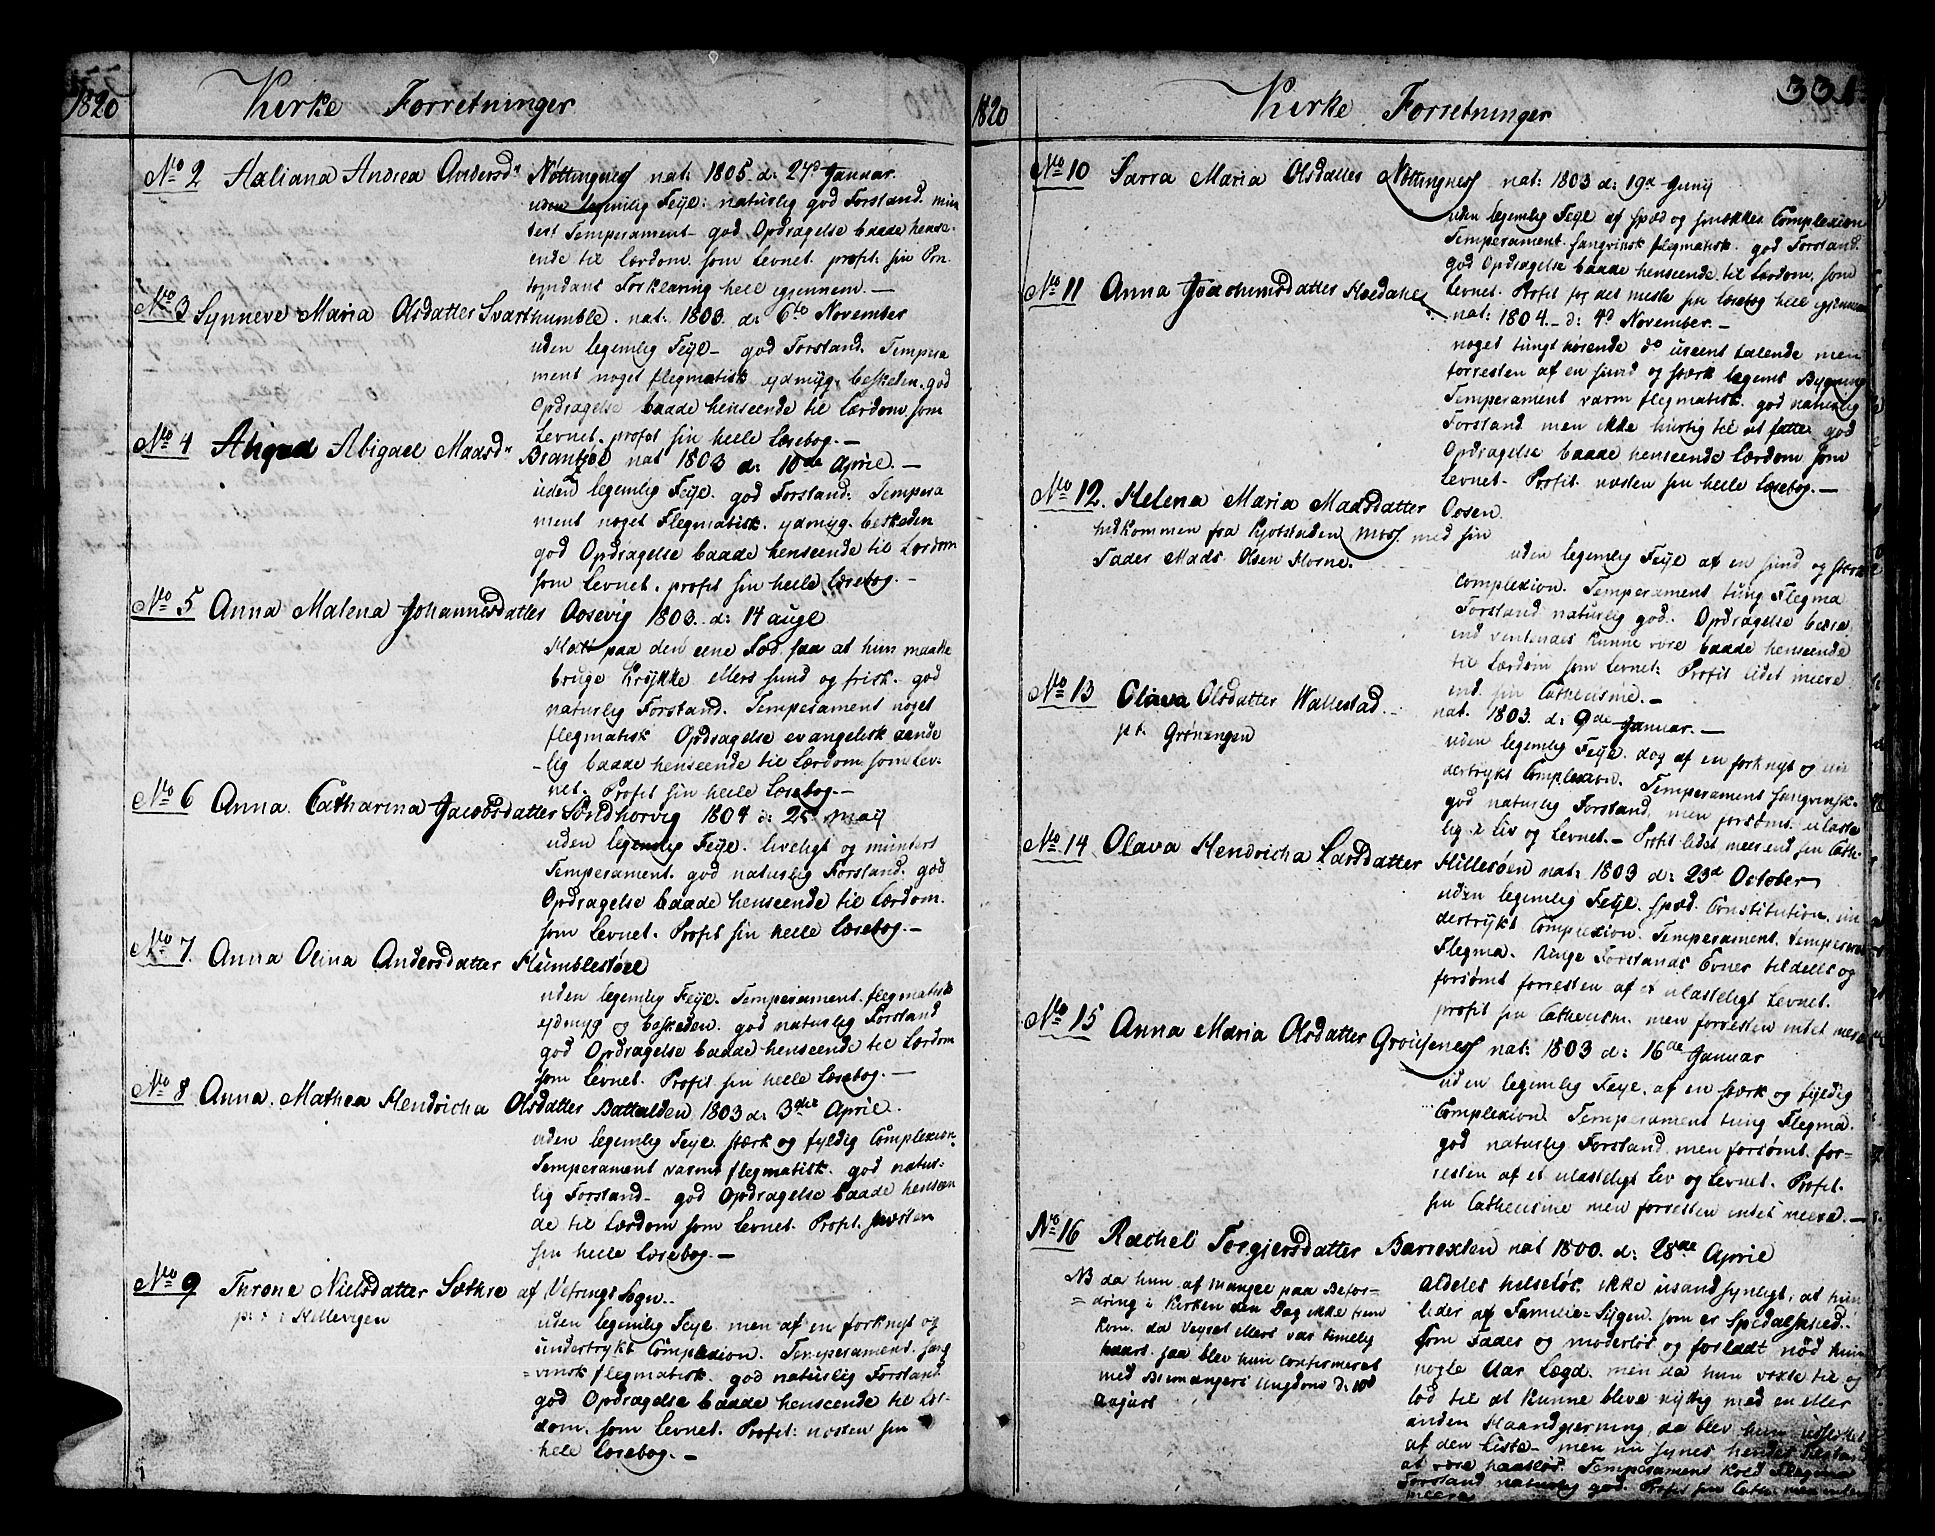 1820 Kirke Forretninger
No 2 Haliana Andrea Andersdr Nøttingnes nat: 1805. d: 27d Januar.
uden legemlig Feÿl: naturlig god Forstand. mun
tert Temperament god Opdragelse baade hense-
ende til Lærdom som Levnet. profit. sin Pon-
topidans Forklaring hele igjennem. —
No 3 Synneve Maria Olsdatter Svarthumble. nat: 1803. d: 6te November
uden legemlig Feÿl – god Forstand. Tempera
ment noget flegmatisk ydmyg. beskeden. god
Opdragelse baade henseende til Lærdom som
Levnet. profit sin heele Læsebog. —
No 4 Abigael Madsdr Brantsøe nat 1803 d: 10de April. —
uden legemlig Feÿl. god Forstand: Tempera
ment noget Flegmatisk. ydmyg. beskeden
god Opdragelse baade henseende til Lærdom
som Levnet. profit sin heele Læsebog. —
No 5 Anna Malena Johannesdatter Oosevig 1803. d: 14 augl
Halt paa den eene Fod, saa at hun maatte
bruge Krÿkke ellers sund og frisk. god
naturlig Forstand. Temperament noget
flegmatisk Opdragelse evangelisk
lig baade henseende til Lærdom som Lev-
net. Profit sin heele Læsebog. —
No 6 Anna. Catharina Jacobsdatter Sandhorvig 1804 d: 25 Maÿ
uden legemlig Feÿl. liveligt og muntert
Temperament. god naturlig Forstand: god
Opdragelse baade henseende til Lærdom.
som Levnet. Profit sin heele Læsebog. —
No 7. Anna Olina Andersdatter Humblestøel
uden legemlig Feÿl. Temperament. flegmatisk
ydmyg og beskeden. god naturlig Forstand
god Opdragelse baade henseende til Lærdom
som Levnet. Profit sin heele Læsebog. —
No 8 Anna. Mathea Hendricha Olsdatter Battalden 1803 d: 3die April.
uden legemlig Feÿl stærk og fyldig Complexion.
Temperament varmt flegmatisk. god natur-
lig Forstand – god Opdragelse baade henseen
de til Lærdom som Levnet. Profit næsten
sin heele Læsebog. —
No 9 Throne Nielsdatter Sæthre af Vefrings Sogn.
p: t: i Hellevigen
uden legemlig Feÿl men af en forknyt og
undertrykt Complexion. Temperament. sang
vinsk flegmatisk. god naturlig Forstand
god Opdragelse baade henseende til Lær-
dom. som Levnet. Profit: næsten sin
hele Læsebog. —
1820 Kirke Forretninger 331
No 10 Sarra Maria Olsdatter Nøttingnes nat: 1803 d: 19d Junÿ
uden legemlig Feÿl af spæd og smækker Complexion
Temperament sangvinsk flegmatisk. god Forstand.
god Opdragelse baade henseende til Lærdom, som
Levnet. Profit for det meste sin Læsebog hele igjennem
No 11 Anna Joachimsdatter Hoedahl nat: 1804. – d: 4d November. —
noget tungt hørende do useent talende men
forresten af en sund og stærk legems Bygning
Temperament varm flegmatisk. god naturlig
Forstand men ikke hurtig til at fatte. god
Opdragelse baade henseende Lærdom som
Levnet. Profit. næsten sin heele Læsebog. —
No 12. Helena Maria Madsdatter Oosen.
hidkommen fra Kjøbstaden Moss. med sin
Fader Mads Olsen Horne.
uden legemlig Feÿl af en sund og stærk
Complexion. Temperament tung Flegma
Forstand naturlig god. Opdragelse bedre
end ventendes kunne være baade henseende
til Lærdom som Levnet: Profit lidet meere
end. sin Cathecisme. —
No 13 Olava Olsdatter Wallestad.
p.t. Grøningen
nat. 1803. d: 9de Januar. —
uden legemlig Feÿl. dog af en forknyt og un
dertrykt Complexion. Temperament sangvinsk.
god naturlig Forstand, men forsømt. ulaste
lig i Liv og Levnet. – Profit lidet meer end sin Cathe.
No 14 Olava Hendricha Larsdatter Hillesøen nat: 1803 d: 23d October
uden legemlig Feÿl. spæd. Constitution. un
dertrykt Complexion. Temperament. tempereret
Flegma. Ringe Forstands Evner tildeels og
forsømt forresten af et ulasteligt Levnet.
profit sin Cathecism. men forresten intet meere
No 15 Anna Maria Olsdatter Grousnes nat: 1803 d: 16de Januar
uden legemlig Feÿl. af en stærk og fyldig
Complexion. Temperament tung Flegma.
god naturlig Forstand. men forsømt. for-
resten af et ulasteligt Liv og Levnet. Profit.
sin Cathecisme men forresten intet meere. —
No 16 Rachel Torgjersdatter Barrexlen nat 1800. d: 28de April
NB da hun af mangel paa Befor-
dring i Kirken den Dag ikke hun
kom. da Veyret ellers var temelig
haart. saa blev hun Confirmeret
med Bremangers Ungdom d: 10d
August
aldeles helseløs. ikke usandsynligt, at hun
lider af Familie-Sygen. som er Spedalskhed.
som Fader og moderløs og forladt nød hun
nogle Aar Lægd. men da hun voxte til og
lod til at kunne blive nyttig med en eller
anden Haandgjerning, da blev hun udslettet
af den Liste – men nu synes hendes Tilstand
at være haabløs. Temperament kold Flegma
Forstand naturlig god. Profit sin Cath. men intet
meere